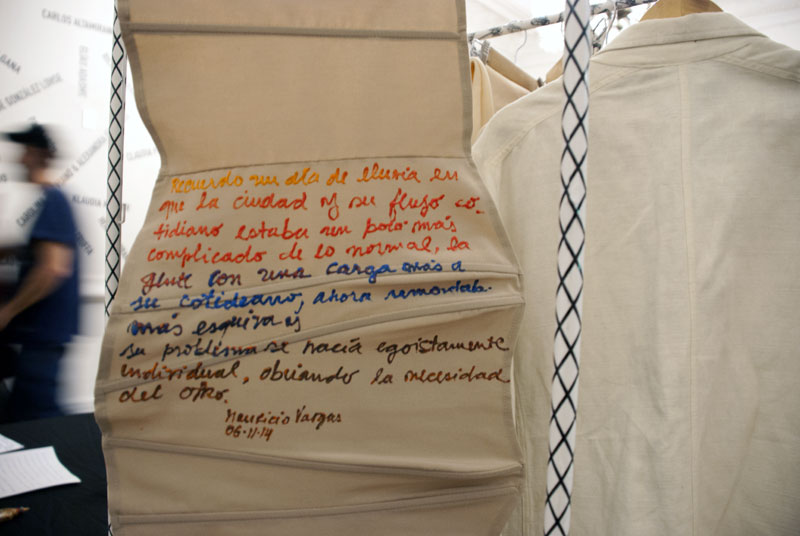 CARLOS ALTAMIRAN
GANA
GONZÁLEZ
& ALEJANDRA
CLAUDIA
KLAUDIA
CAROLINA
Recuerdo un día de lluvia en
que la ciudad y su flujo co-
tidiano estaba un poco más
complicado de lo normal, la
gente con una carga más a
su cotideano, ahora remontab.
más esquiva y
su problema se hacía egoistamente
individual, obviando la necesidad
del otro.
Mauricio Vargas
06-11-14